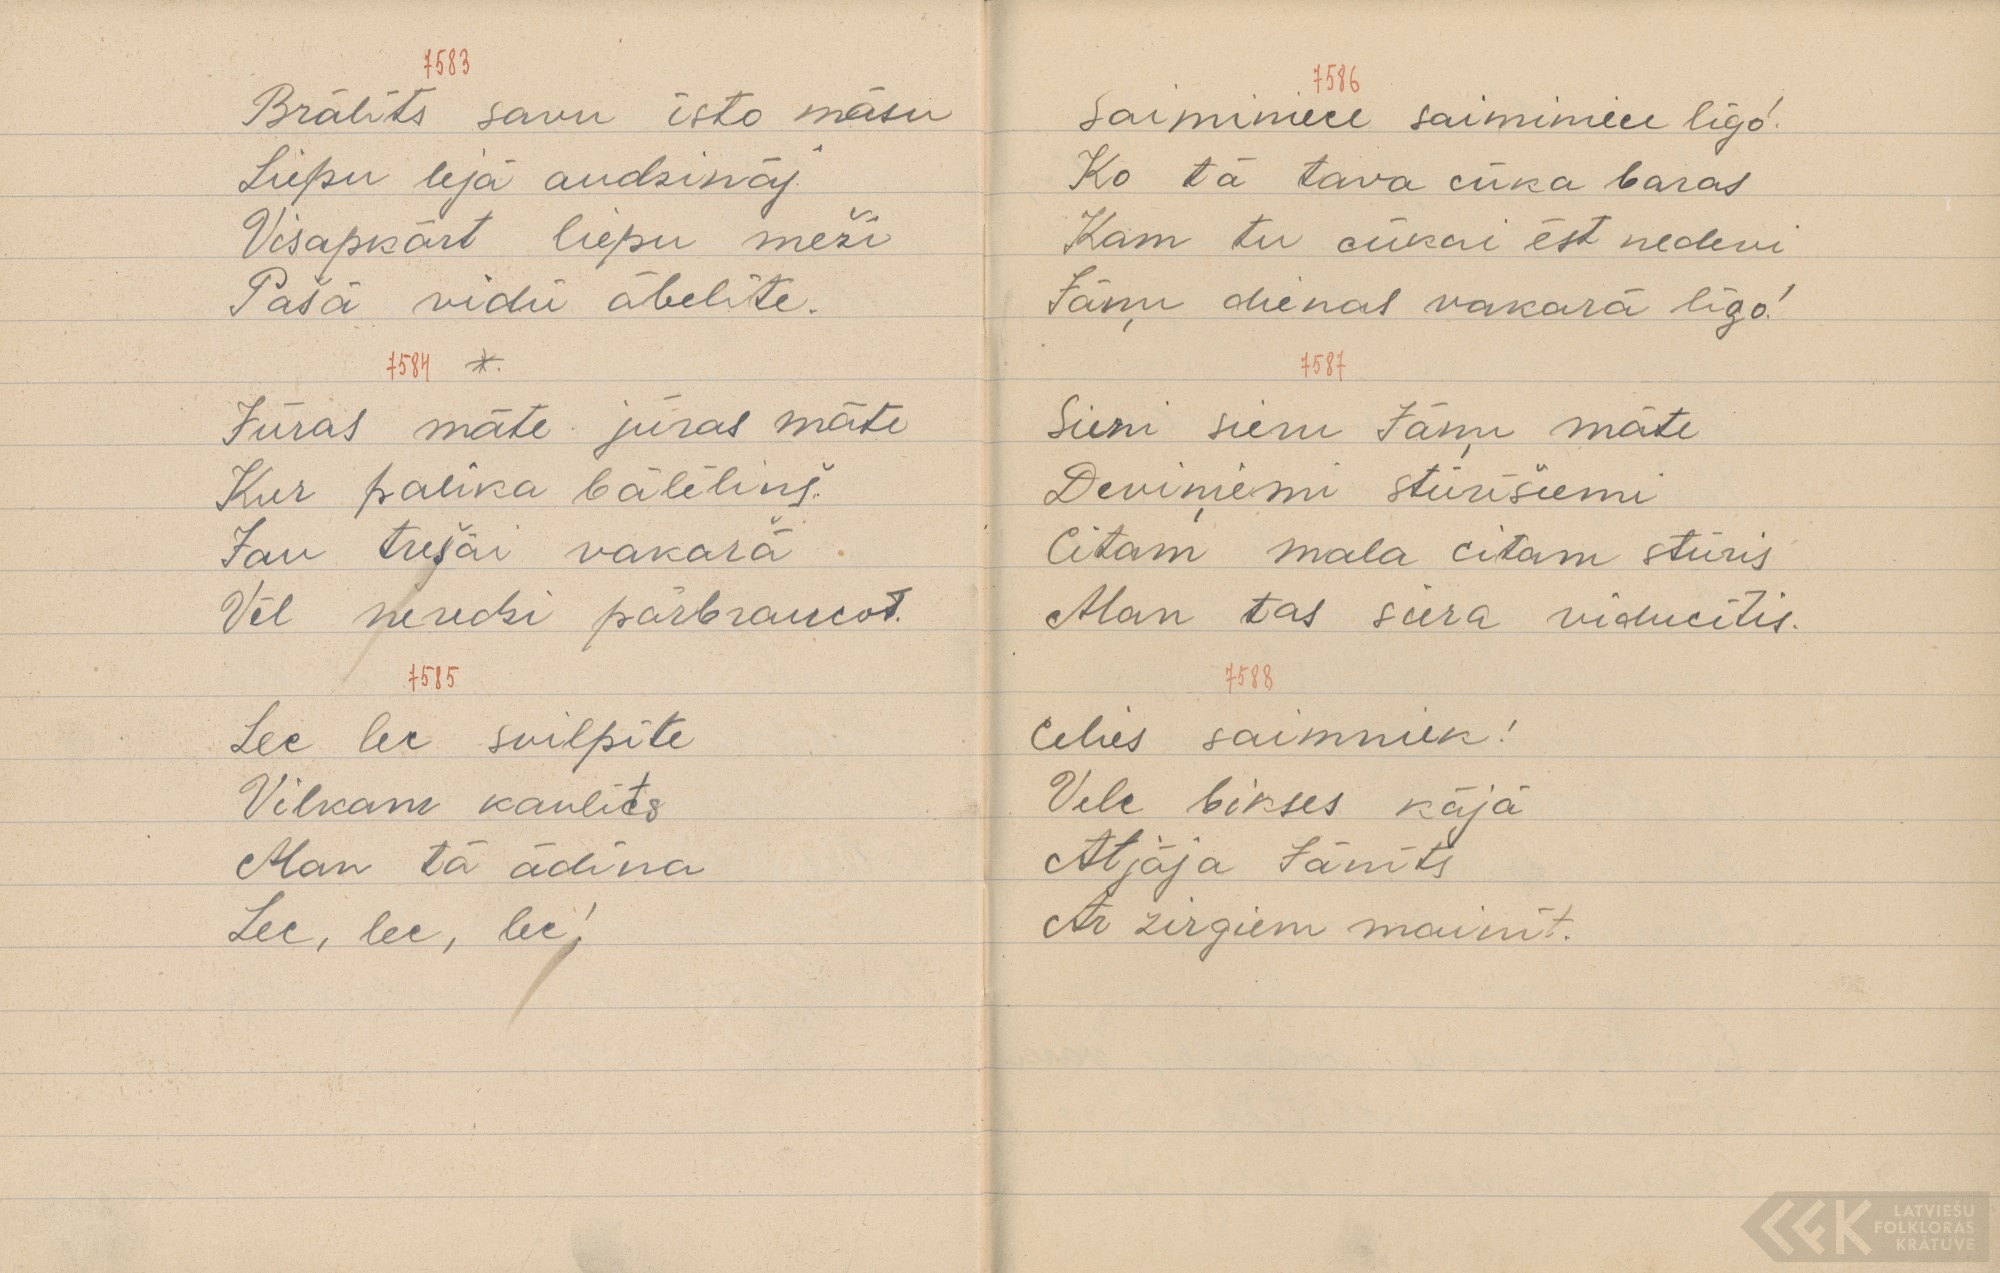 7583
Brālīts savu īsto māsu
Liepu lejā audzināj
Visapkārt liepu meži
Pašā vidū ābelīte.
7584 *.
Jūras māte jūras māte
Kur palika bālēliņš.
Jau trešāi vakarā
Vēl neredzi pārbraucot.
7585
Lec lec svilpīte
Vilkam kaulits
Man tā ādiņa
Lec, lec, lec!
7586
Saiminiece saiminiece līgo!
Ko tā tava cūka baras
Kam tu cūkai ēst nedevi
Jāņu dienas vakarā līgo!
7587
Sieni sieru Jāņu māte
Deviņiēmi stūrīšiemi
Citam mala citam stūris
Man tas siera viducītis.
7588
Celies saimniek!
Velc bikses kājā
Atjāja Jānīts
Ar zirgiem mainīt.
LATVIEŠU
FOLKLORAS
KRĀTUVE